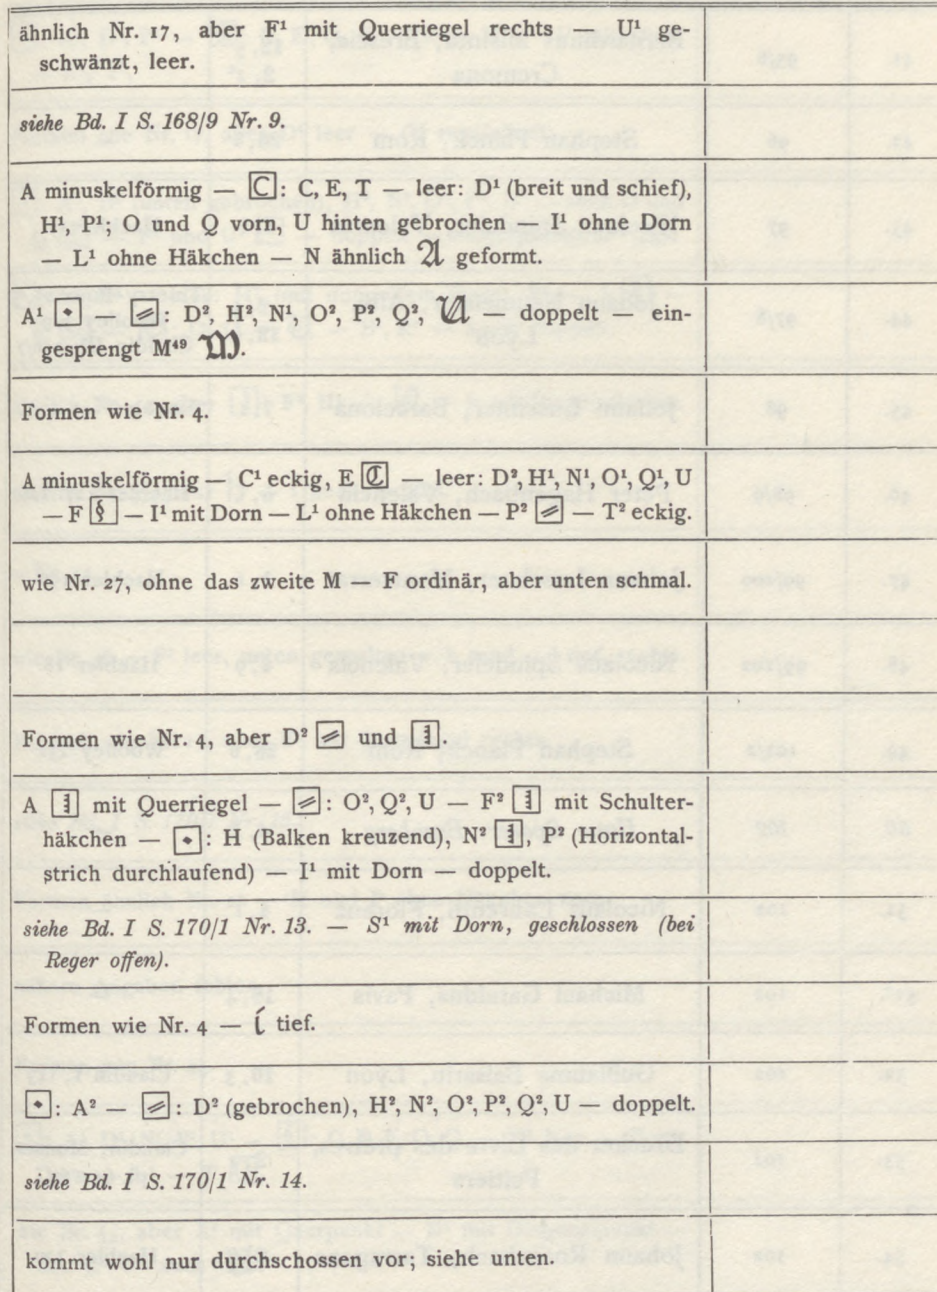 ähnlich Nr. 17, aber F¹ mit Querriegel rechts — U¹ ge-
schwänzt, leer.
siehe Bd. I S. 168/9 Nr. 9.
A minuskelförmig — C: C, E, T — leer: D¹ (breit und schief),
H¹, P¹; O und Q vorn, U hinten gebrochen — I¹ ohne Dorn
— L¹ ohne Häkchen — N ähnlich 𝔄 geformt.
A¹ — D², H², N¹, O², P², Q², 𝔄 — doppelt — ein-
gesprengt M⁴⁹ 𝔐.
Formen wie Nr. 4.
A minuskelförmig — C¹ eckig, E ℭ leer: D², H¹, N¹, O¹, Q¹, U
— F — I¹ mit Dorn — L¹ ohne Häkchen — P² — T² eckig.
wie Nr. 27, ohne das zweite M — F ordinär, aber unten schmal.
Formen wie Nr. 4, aber D² und .
A mit Querriegel — : O², Q², U — F² mit Schulter-
häkchen — : H (Balken kreuzend), N² , P² (Horizontal-
strich durchlaufend) — I¹ mit Dorn — doppelt.
siehe Bd. I S. 170/1 Nr. 13. — S¹ mit Dorn, geschlossen (bei
Reger offen).
Formen wie Nr. 4 — í tief.
: A² — : D² (gebrochen), H², N², O², P², Q², U — doppelt.
siehe Bd. I S. 170/1 Nr. 14.
kommt wohl nur durchschossen vor; siehe unten.